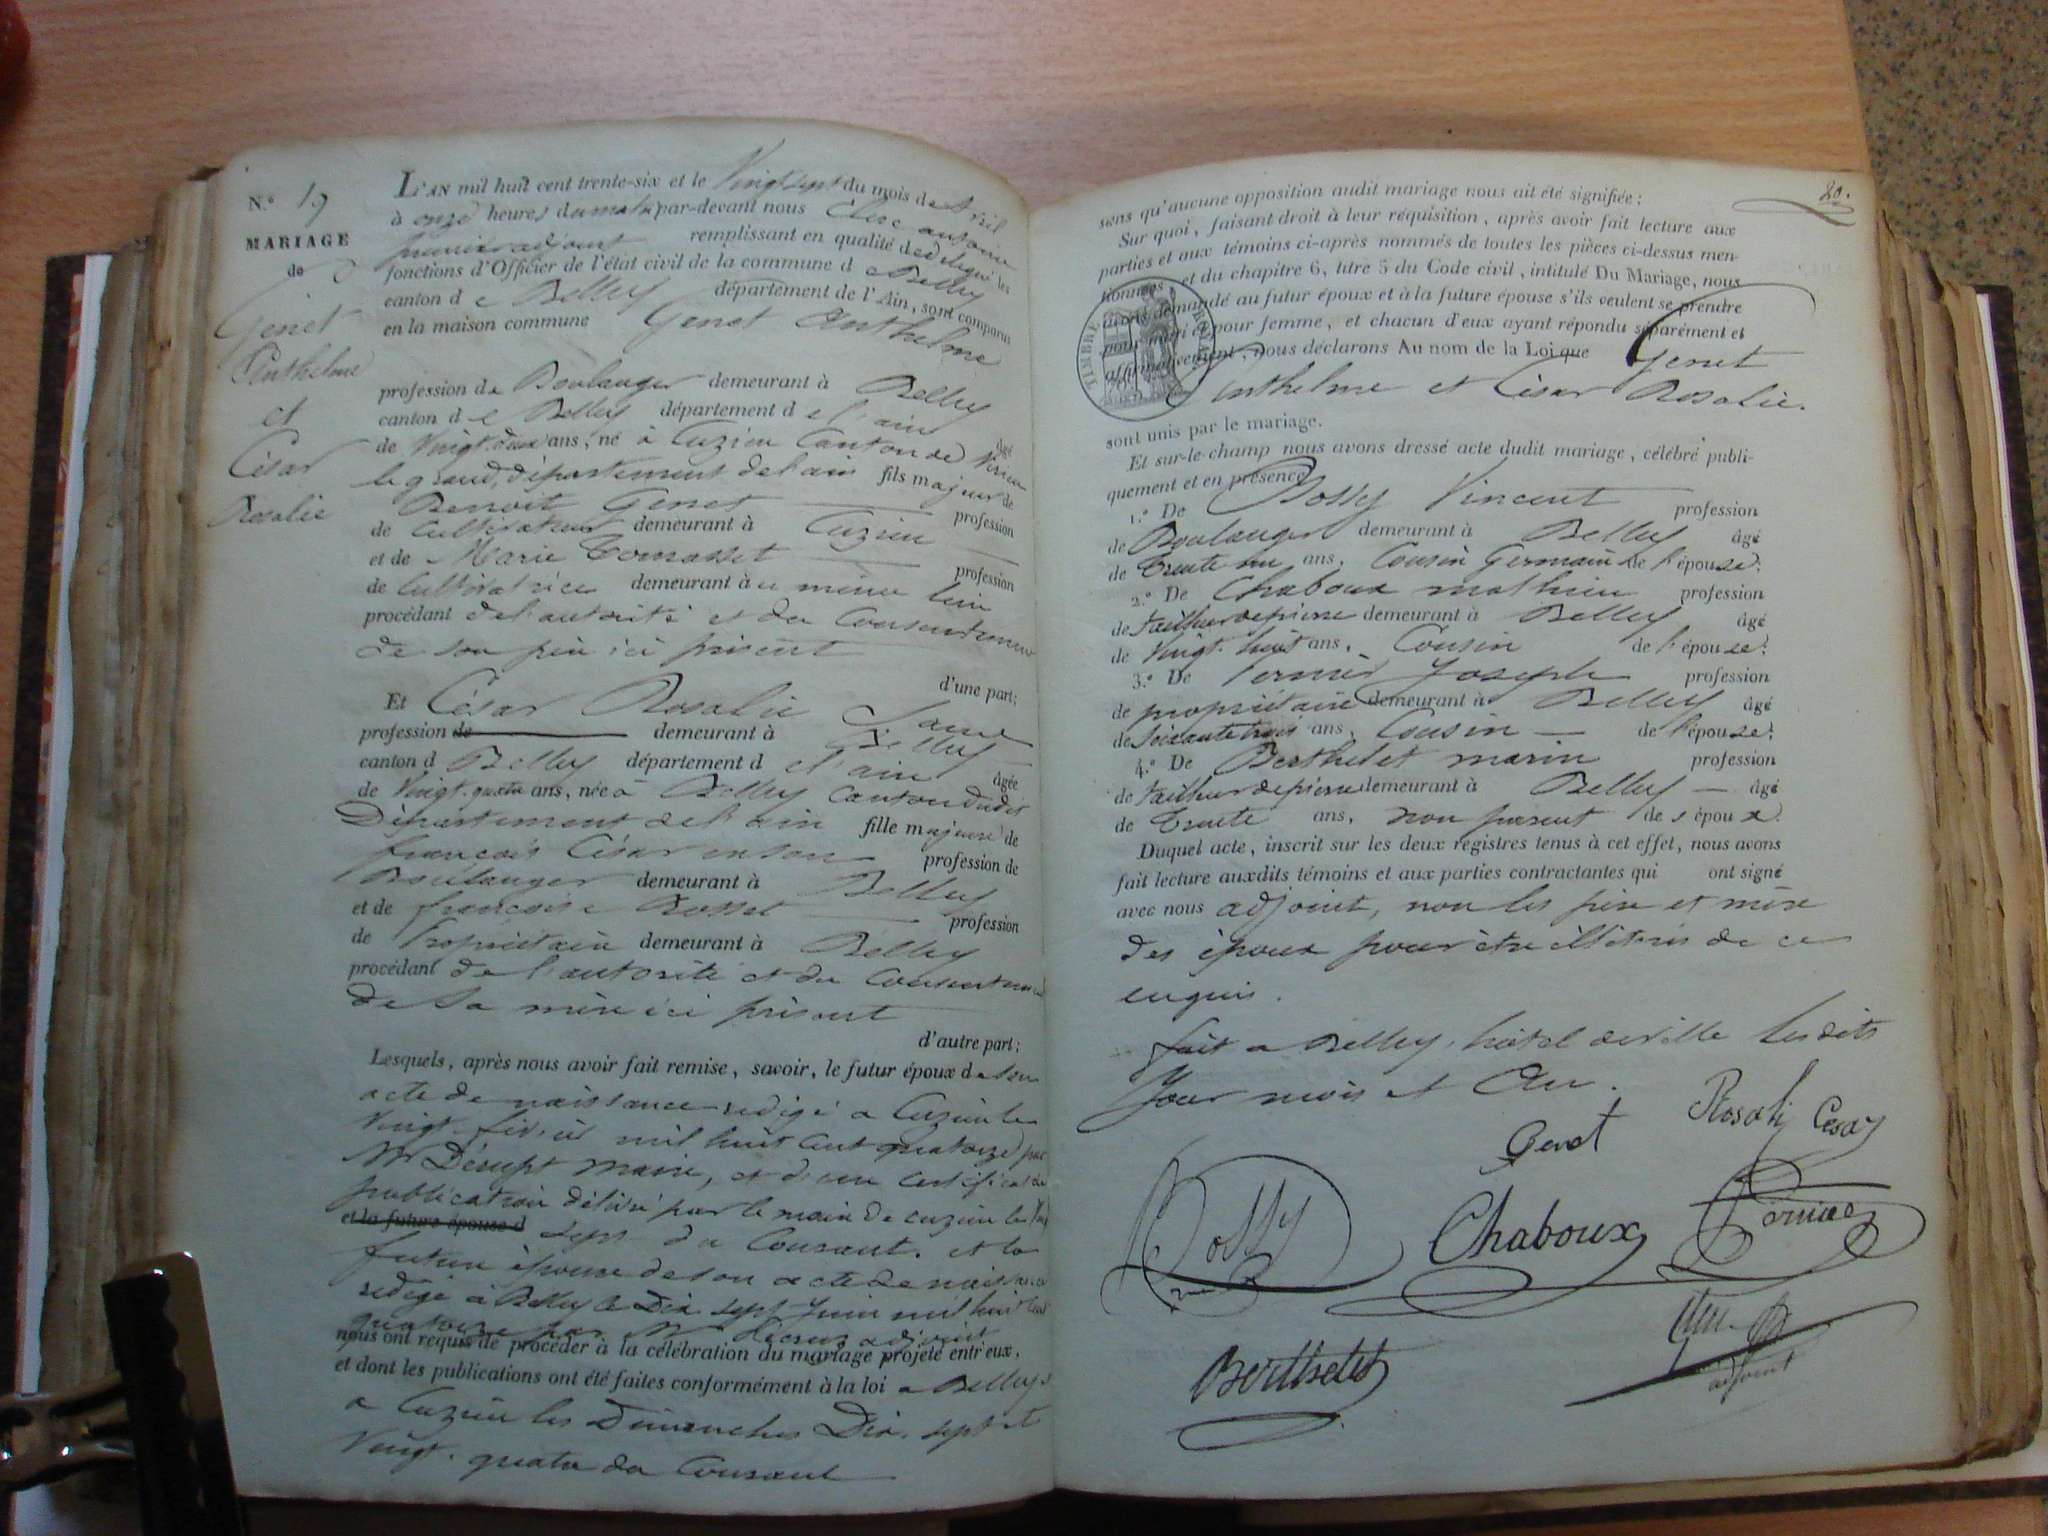 N.º 19
MARIAGE
de
Genet
Anthelme
et
César
Rosalie
L'AN mil huit cent trente-six et le Vingt sept du mois de Avril
à onze heures du matin par-devant nous Clerc antoine
premier adjoint remplissant en qualité de délégué les
fonctions d'Officier de l'état civil de la commune d e Belley
canton d e Belley département de l'Ain, sont comparus
en la maison commune Genet Anthelme
profession de Boulanger demeurant à Belley
canton d e Belley département d e l'ain âgé
de Vingt deux ans, né à Cuzieu Canton de Virieu
le grand, département de l'ain fils majeur de
Benoit Genet profession
de Cultivateur demeurant à Cuzieu
et de Marie Tomasset profession
de Cultivatrice demeurant à u même lieu
procédant de l'autorité et du Consentement
de son père ici présent
d'une part;
Et César Rosalie
profession de sans demeurant à Belley
canton d Belley département d e l'ain âgée
de Vingt-quatre ans, née à Belley Canton dudit
Département de l'ain fille majeure de
françois César profession de
Boulanger demeurant à Belley
et de françoise Rosset profession
de Propriétaire demeurant à Belley
procédant de l'autorité et du Consentement
de sa mère ici présent
d'autre part;
Lesquels, après nous avoir fait remise, savoir, le futur époux de son
acte de naissance redigé a Cuzieu le
Vingt février mil huit cent quatorze par
Mr maire, et d'un certificat de
publication délivré par le maire de cuzieu le Vingt
et la future épouse d sept du Courant. et la
future épouse de son acte de naissance
redigé a Belley le Dix-sept Juin mil huit cent
quatorze par Mr adjoint
nous ont requis de procéder à la célébration du mariage projeté entr'eux,
et dont les publications ont été faites conformément à la loi a Belley
a Cuzieu les Dimanches Dix-sept et
Vingt-quatre du Courant
20.
sens qu'aucune opposition audit mariage nous ait été signifiée;
Sur quoi, faisant droit à leur réquisition, après avoir fait lecture aux
parties et aux témoins ci-après nommés de toutes les pièces ci-dessus men-
tionnées, et du chapitre 6, titre 5 du Code civil, intitulé Du Mariage, nous
avons demandé au futur époux et à la future épouse s'ils veulent se prendre
pour mari et pour femme, et chacun d'eux ayant répondu séparément et
affirmativement, nous déclarons Au nom de la Loi que Genet
Anthelme et César Rosalie.
TIMBRE ROYAL
sont unis par le mariage.
Et sur-le-champ nous avons dressé acte dudit mariage, célébré publi-
quement et en présence
1.º De Rossy Vincent profession
de Boulanger demeurant à Belley âgé
de Trente un ans, Cousin Germain de l'épouse;
2.º De Chaboux mathieu profession
de tailleur de pierre demeurant à Belley âgé
de Vingt huit ans, Cousin de l'épouse;
3.º De Pernier Joseph profession
de propriétaire demeurant à Belley âgé
de Soixante trois ans, Cousin de l'épouse;
4.º De Berthelet marin profession
de tailleur de pierre demeurant à Belley âgé
de Trente ans, non parent de s époux.
Duquel acte, inscrit sur les deux registres tenus à cet effet, nous avons
fait lecture auxdits témoins et aux parties contractantes qui ont signé
avec nous adjoint, non les père et mère
des époux pour être illétrés de ce
enquis.
fait a Belley, hôtel de ville les dits
Jour mois et An.
Rosali Cesar
Genet
Rossy
Chaboux
Pernier
Berthelet
adjoint